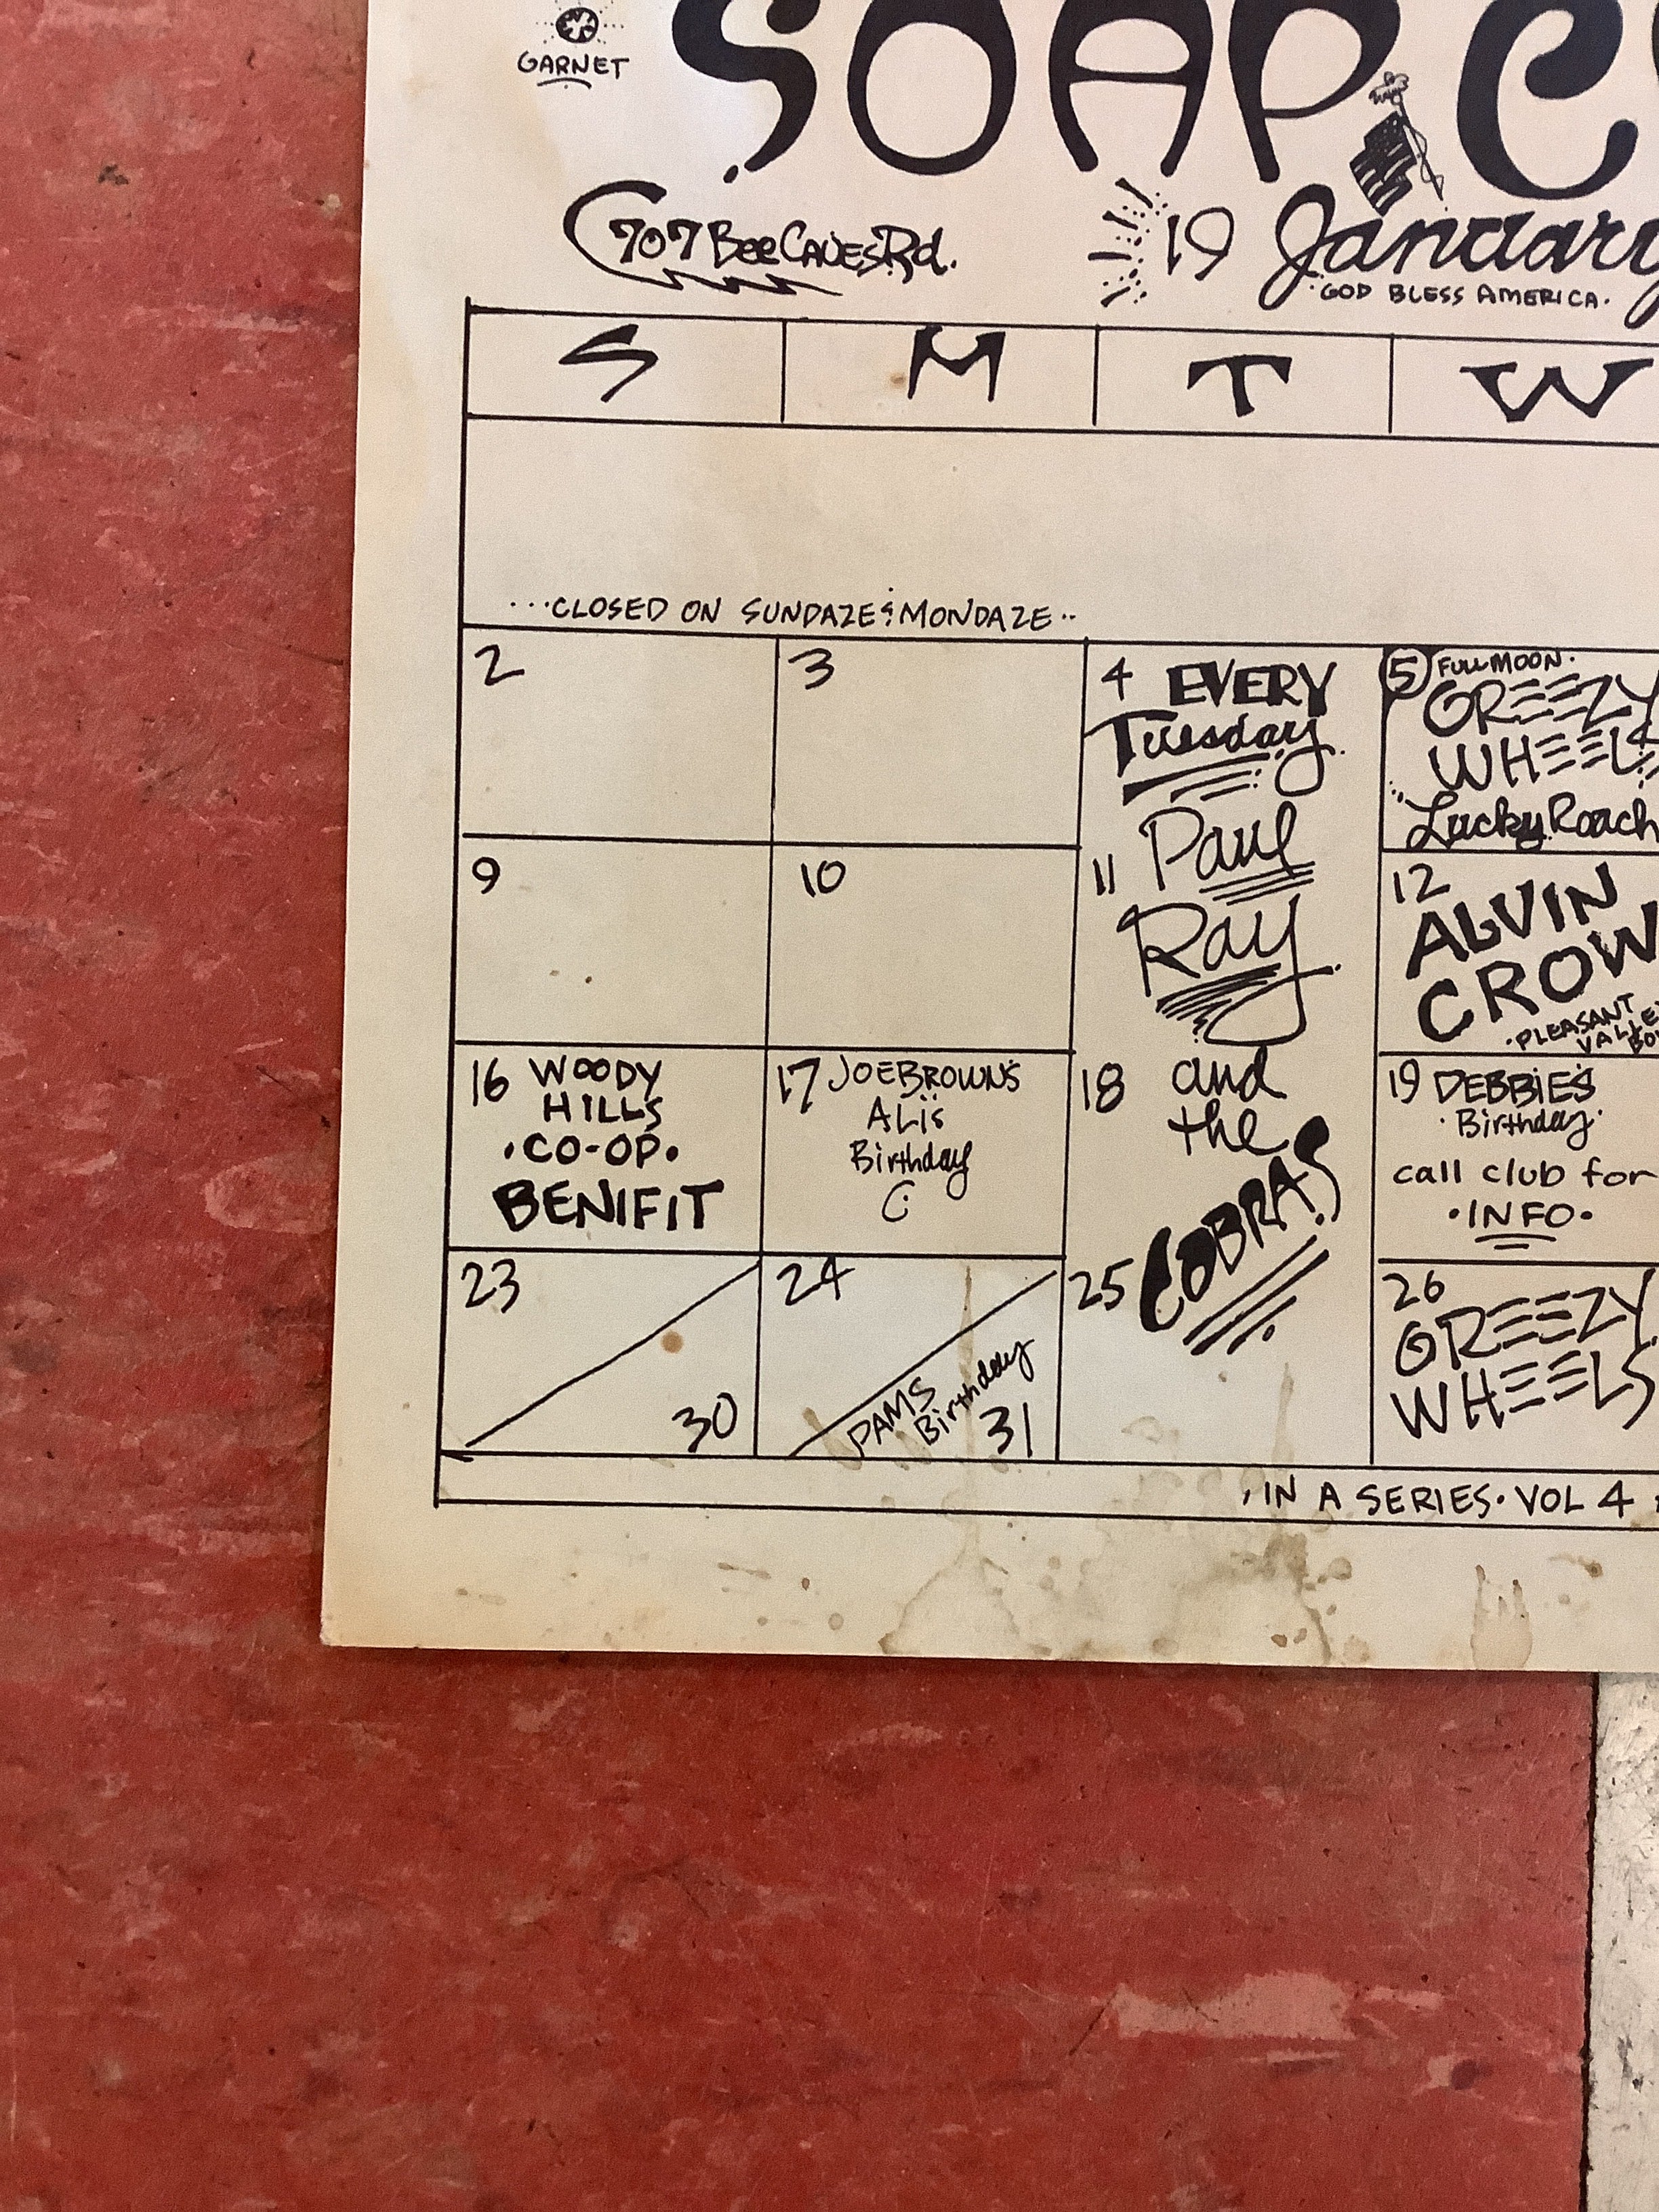 GARNET
SOAP C
707 Bee CAVES Rd.
19 January
GOD BLESS AMERICA.
S M T W
...CLOSED ON SUNDAZE & MONDAZE..
2
3
4 EVERY
Tuesday
Paul
11
Ray
18 and
the
COBRAS
25
5 FULL MOON.
GREEZY
WHEELS
Lucky Roach
9
10
12
ALVIN
CROW
•PLEASANT
16 WOODY
HILLS
•CO-OP•
BENIFIT
17 JOEBROWN'S
ALi's
Birthday
19 DEBBIE'S
•Birthday•
call club for
•INFO•
23
30
24
PAMS
Birthday
31
26
GREEZY
WHEELS
IN A SERIES• VOL 4